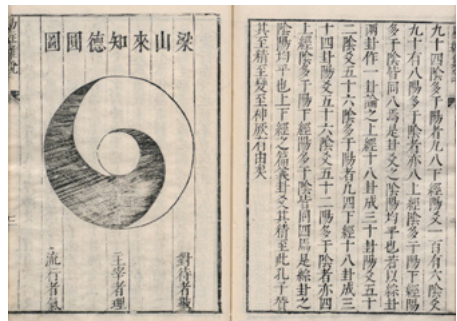 九十四陰多于陽者凡八下經陽爻一百有六陰爻
九十有八陽多于陰者亦八上經陰多于陽下經陽
多于陰皆同八焉是卦爻之陰陽均平也若以綜卦
兩卦作一卦論之上經十八卦成三十卦陽爻五十
二陰爻五十六陰多于陽者凡四下經十八卦成三
十四卦陽爻五十六陰爻五十二陽多于陰者亦四
上經陰多于陽下經陽多于陰皆同四焉是綜卦之
陰陽均平也上下經之篇義卦爻其精至此孔子贊
其至精至變至神厥有由矣
梁山來知德圓圖
對待者數
主宰者理
流行者氣